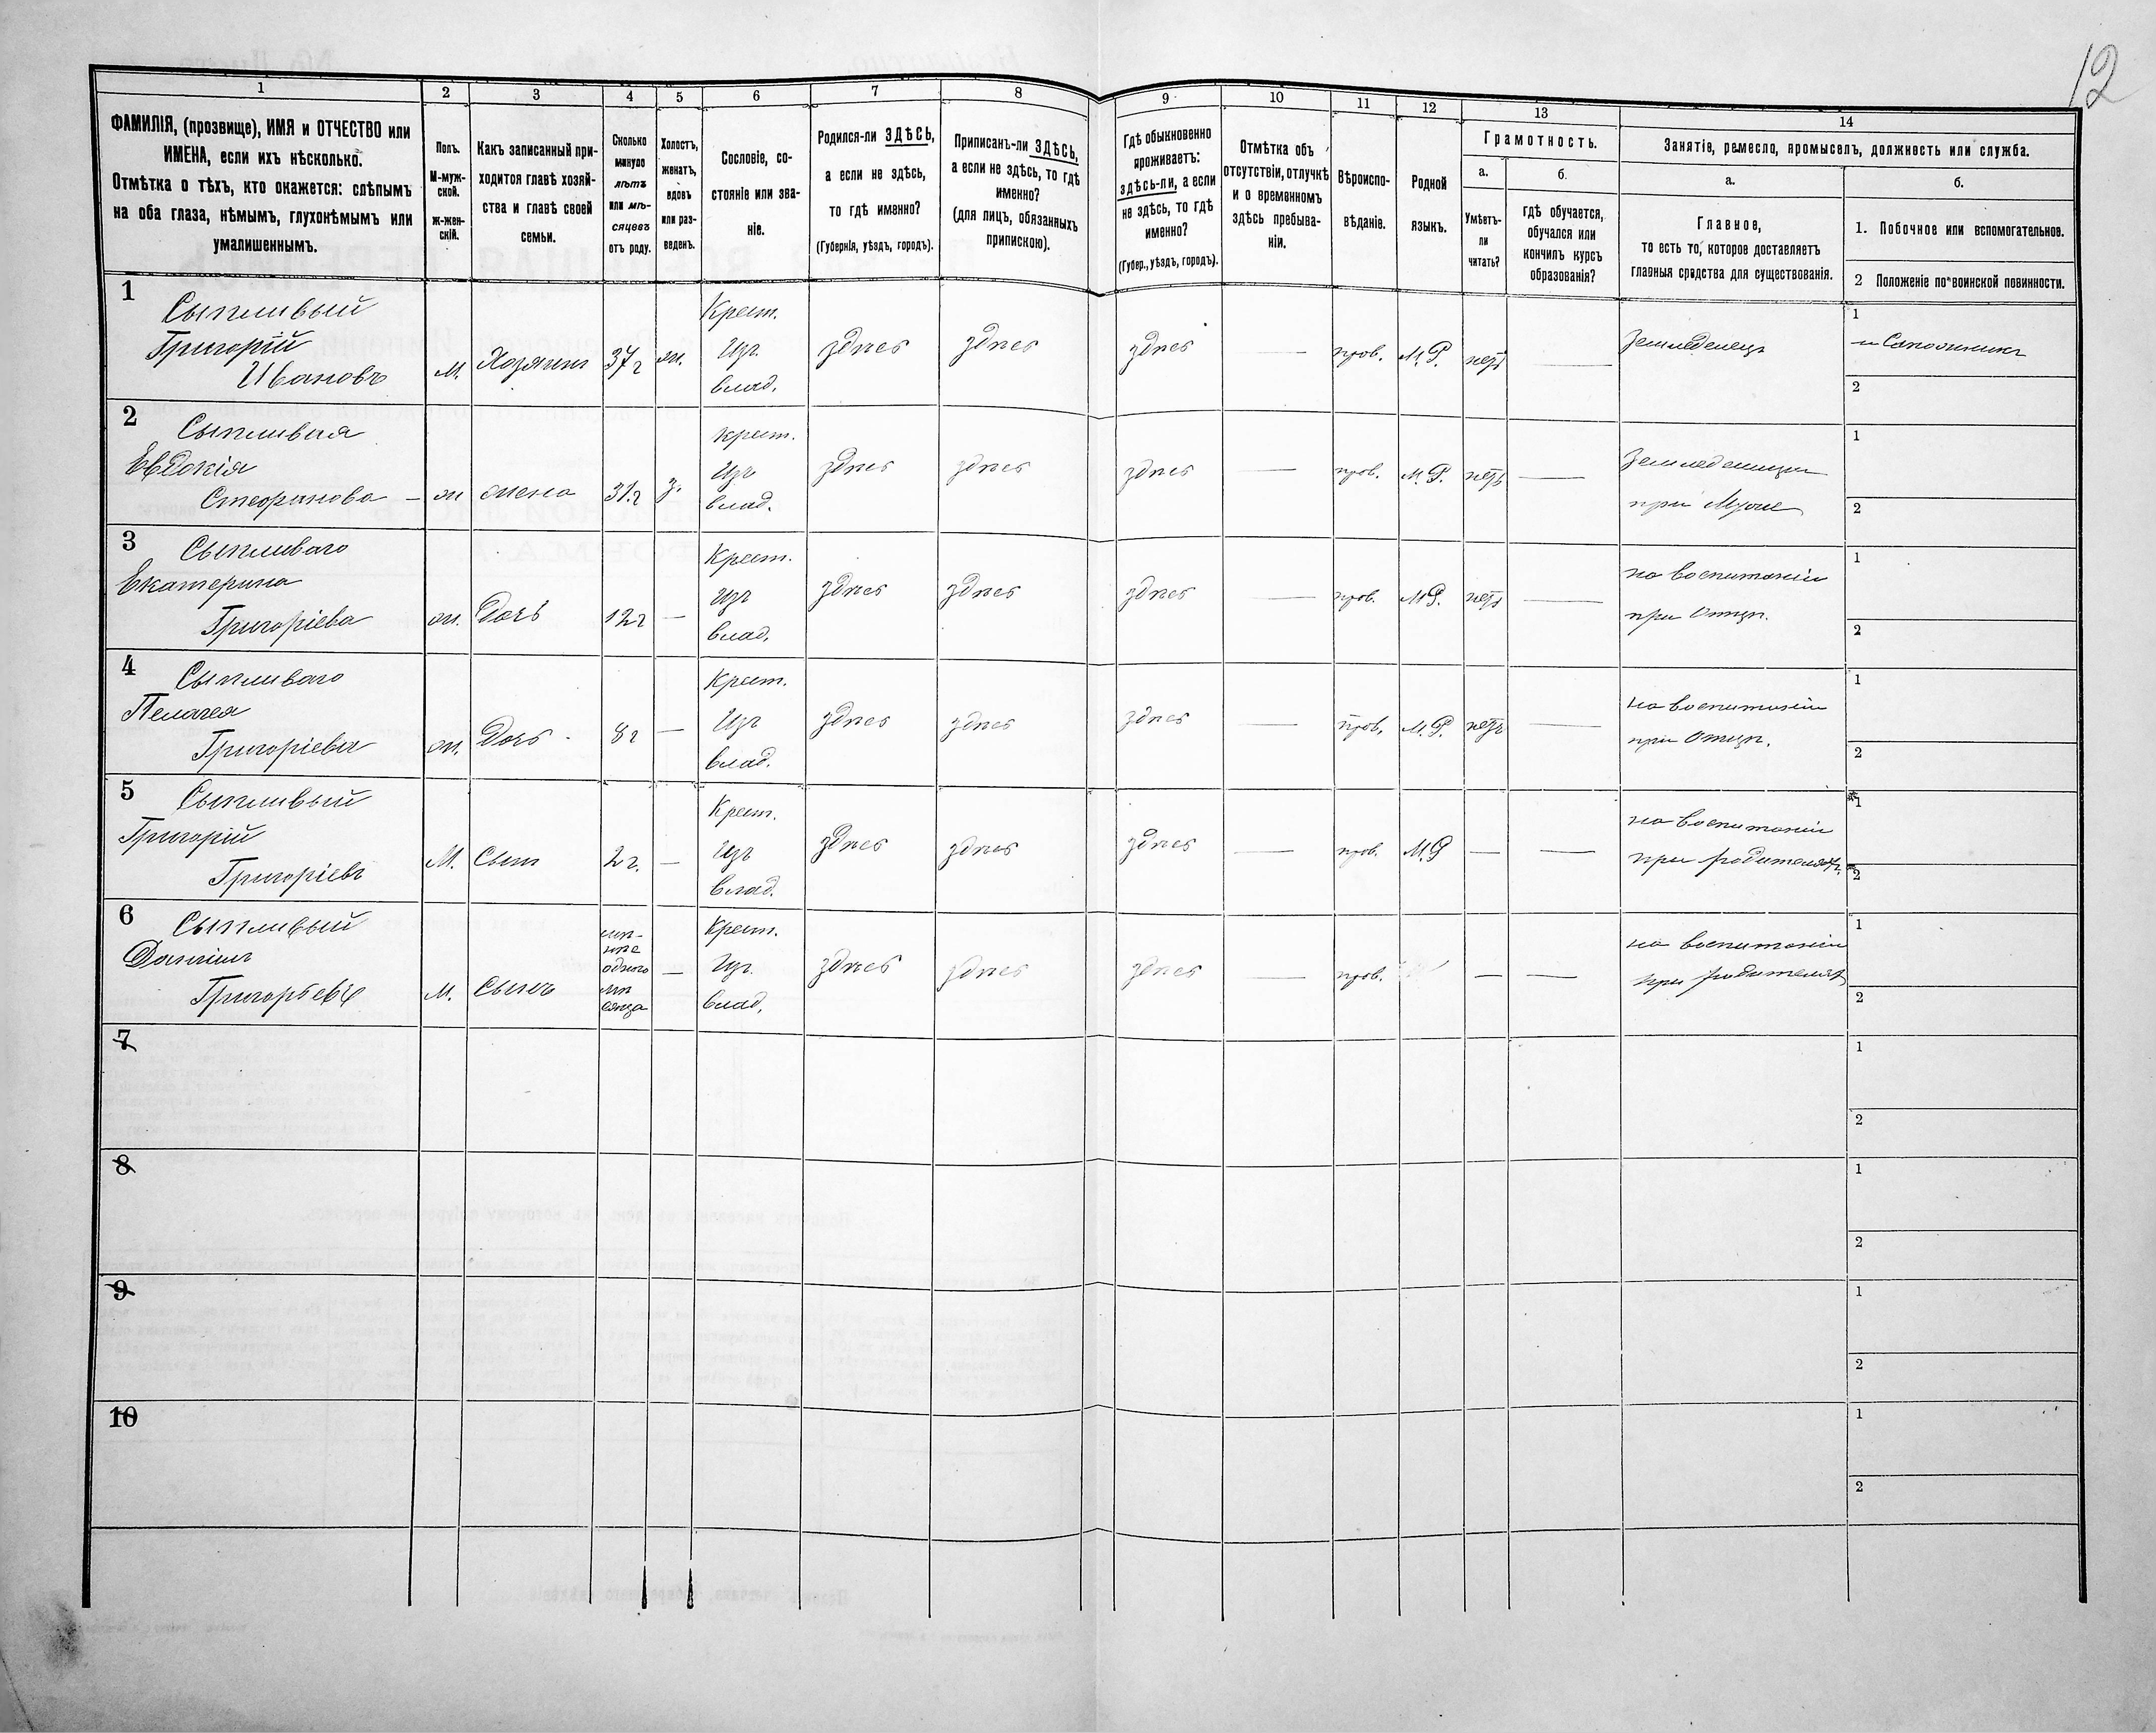 12
1
2
3
4
5
6
7
8
9
10
11
12
13
14
ФАМИЛІЯ, (прозвище), ИМЯ и ОТЧЕСТВО или
ИМЕНА, если ихъ нѣсколько.
Отмѣтка о тѣхъ, кто окажется: слѣпымъ
на оба глаза, нѣмымъ, глухонѣмымъ или
умалишеннымъ.
Полъ.
М-муж-
ской.
ж-жен-
скій.
Какъ записанный при-
ходится главѣ хозяй-
ства и главѣ своей
семьи.
Сколько
минуло
лѣтъ
или мѣ-
сяцевъ
отъ роду.
Холостъ,
женатъ,
вдовъ
или раз-
веденъ.
Сословіе, со-
стояніе или зва-
ніе.
Родился-ли ЗДѢСЬ,
а если не здѣсь,
то гдѣ именно?
(Губернія, уѣздъ, городъ).
Приписанъ-ли ЗДѢСЬ,
а если не здѣсь, то гдѣ
именно?
(для лицъ, обязанныхъ
припискою).
Гдѣ обыкновенно
проживаетъ:
здѣсь-ли, а если
не здѣсь, то гдѣ
именно?
(Губер., уѣздъ, городъ).
Отмѣтка объ
отсутствіи, отлучкѣ
и о временномъ
здѣсь пребыва-
ніи.
Вѣроиспо-
вѣданіе.
Родной
языкъ.
Грамотность.
а.
Умѣетъ-
ли
читать?
б.
гдѣ обучается,
обучался или
кончилъ курсъ
образованія?
Занятіе, ремесло, промыселъ, должность или служба.
а.
Главное,
то есть то, которое доставляетъ
главныя средства для существованія.
б.
1. Побочное или вспомогательное.
2 Положеніе по воинской повинности.
1
Сыпливый
Григорій
Ивановъ
М.
Хозяинъ
37 г
ж.
Крест.
Изъ
влад.
здѣсь
здѣсь
здѣсь
—
прав.
М.Р.
нетъ
—
Земледелецъ
1
и Сапожникъ
2
2
Сыпливая
Евдокія
Стефанова
ж
жена
31 г
з.
крест.
Изъ
влад.
здѣсь
здѣсь
здѣсь
—
прав.
М.Р.
нетъ
—
Земледелица
при Муже
1
2
3
Сыпливаго
Екатерина
Григоріева
ж.
Дочь
12 г
—
Крест.
Изъ
влад.
здѣсь
здѣсь
здѣсь
—
прав.
М.Р.
нетъ
—
на воспитаніи
при Отцѣ.
1
2
4
Сыпливаго
Пелагея
Григоріева
ж.
Дочь
8 г
—
Крест.
Изъ
влад.
здѣсь
здѣсь
здѣсь
—
прав.
М.Р.
нетъ
—
на воспитаніи
при Отцѣ.
1
2
5
Сыпливый
Григорій
Григоріевъ
М.
Сынъ
2 г.
—
Крест.
Изъ
влад.
здѣсь
здѣсь
здѣсь
—
прав.
М.Р
—
—
на воспитаніи
при родителяхъ.
1
2
6
Сыпливый
Даніилъ
Григорьевъ
М.
Сынъ
одного
мѣ
сяца
—
Крест.
Изъ.
влад.
здѣсь
здѣсь
здѣсь
—
прав.
—
—
на воспитаніи
при родителяхъ
1
2
7
1
2
8
1
2
9
1
2
10
1
2